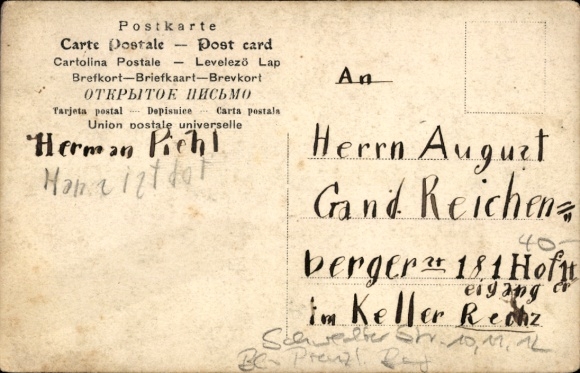 Postkarte
Carte Postale — Post card
Cartolina Postale — Levelező Lap
Brefkort—Briefkaart—Brevkort
ОТКРЫТОЕ ПИСЬМО
Tarjeta postal — Dopisnice — Carta postala
Union postale universelle
Herman Piehl
An
Herrn August
Gand. Reichen=
40-
berger st 181 Hof 1t
eigang er
im Keller Rechz
Schwedter Str. 10, 11, 12
Bln Prenzl. Berg